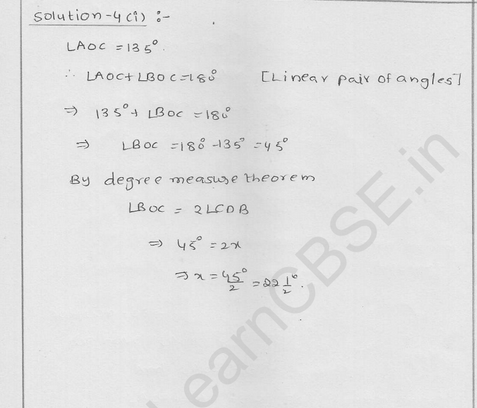 Solution-4(i) :-
∠AOC = 135°.
∴ ∠AOC + ∠BOC = 180° [Linear pair of angles]
⇒ 135° + ∠BOC = 180°
⇒ ∠BOC = 180° - 135° = 45°
By degree measure theorem
∠BOC = 2∠CDB
⇒ 45° = 2x
⇒ x = 45°/2 = 22 1/2°.
LearnCBSE.in